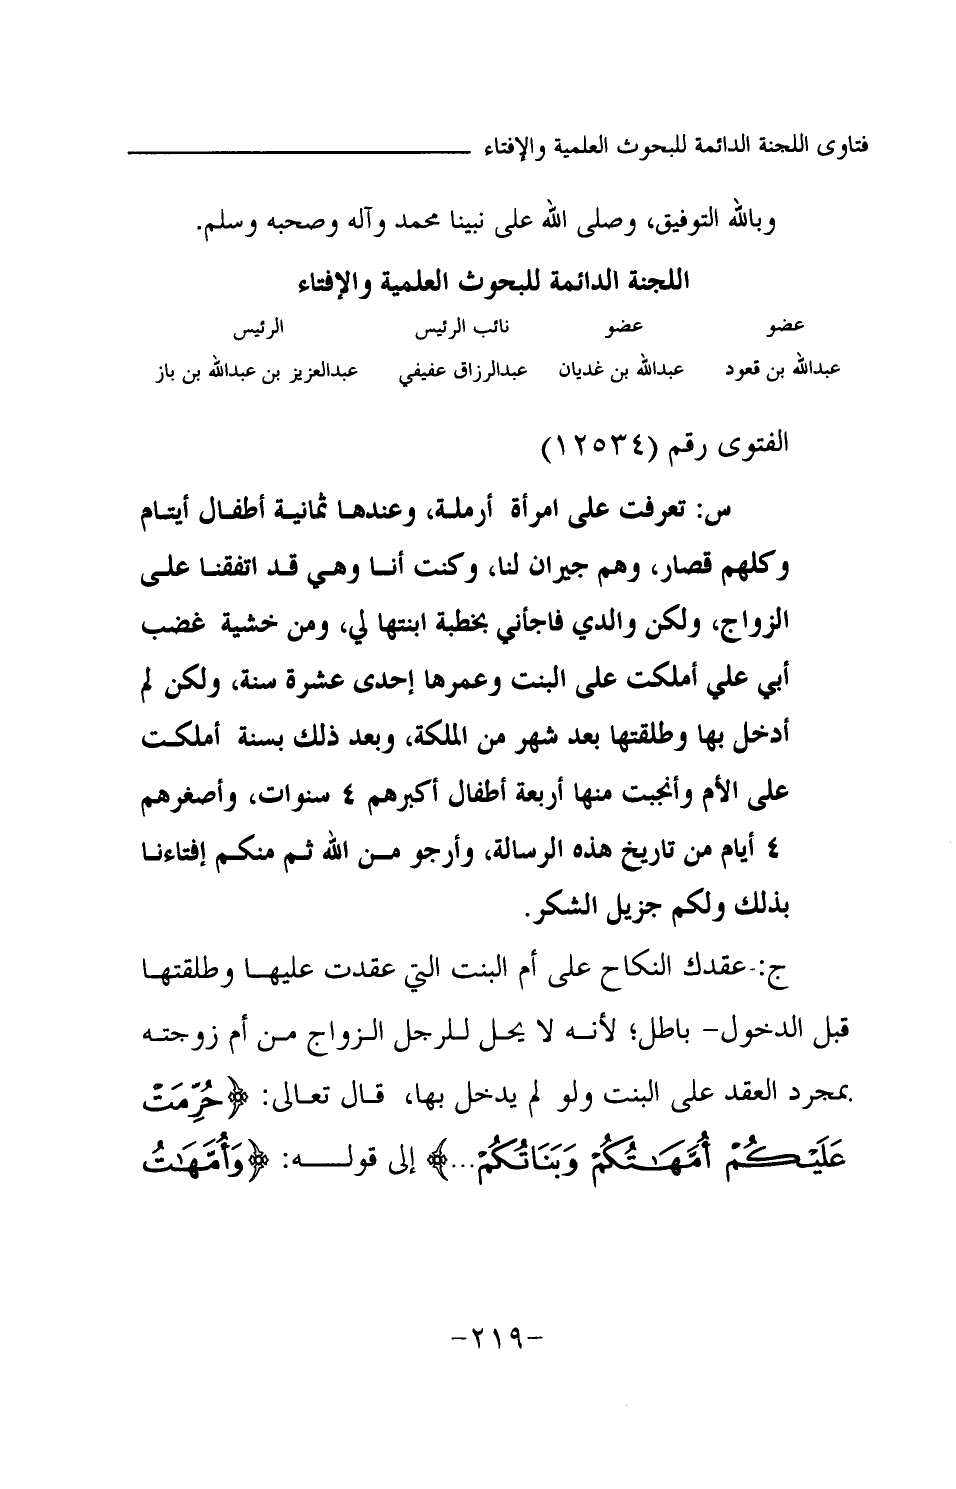 فتاوى اللجنة الدائمة للبحوث العلمية والإفتاء
وبالله التوفيق، وصلى الله على نبينا محمد وآله وصحبه وسلم.
اللجنة الدائمة للبحوث العلمية والإفتاء
عضو عضو نائب الرئيس الرئيس
عبدالله بن قعود عبدالله بن غديان عبدالرزاق عفيفي عبدالعزيز بن عبدالله بن باز
الفتوى رقم (١٢٥٣٤)
س: تعرفت على امرأة أرملة، وعندها ثمانية أطفال أيتام
وكلهم قصار، وهم جيران لنا، وكنت أنا وهي قد اتفقنا على
الزواج، ولكن والدي فاجأني بخطبة ابنتها لي، ومن خشية غضب
أبي علي أملكت على البنت وعمرها إحدى عشرة سنة، ولكن لم
أدخل بها وطلقتها بعد شهر من الملكة، وبعد ذلك بسنة أملكت
على الأم وأنجبت منها أربعة أطفال أكبرهم ٤ سنوات، وأصغرهم
٤ أيام من تاريخ هذه الرسالة، وأرجو من الله ثم منكم إفتاءنا
بذلك ولكم جزيل الشكر.
ج:-عقدك النكاح على أم البنت التي عقدت عليها وطلقتها
قبل الدخول- باطل؛ لأنه لا يحل للرجل الزواج من أم زوجته
بمجرد العقد على البنت ولو لم يدخل بها، قال تعالى: ﴿حُرِّمَتْ
عَلَيْكُمْ أُمَّهَـٰتُكُمْ وَبَنَاتُكُمْ...﴾ إلى قوله: ﴿وَأُمَّهَـٰتُ
-٢١٩-